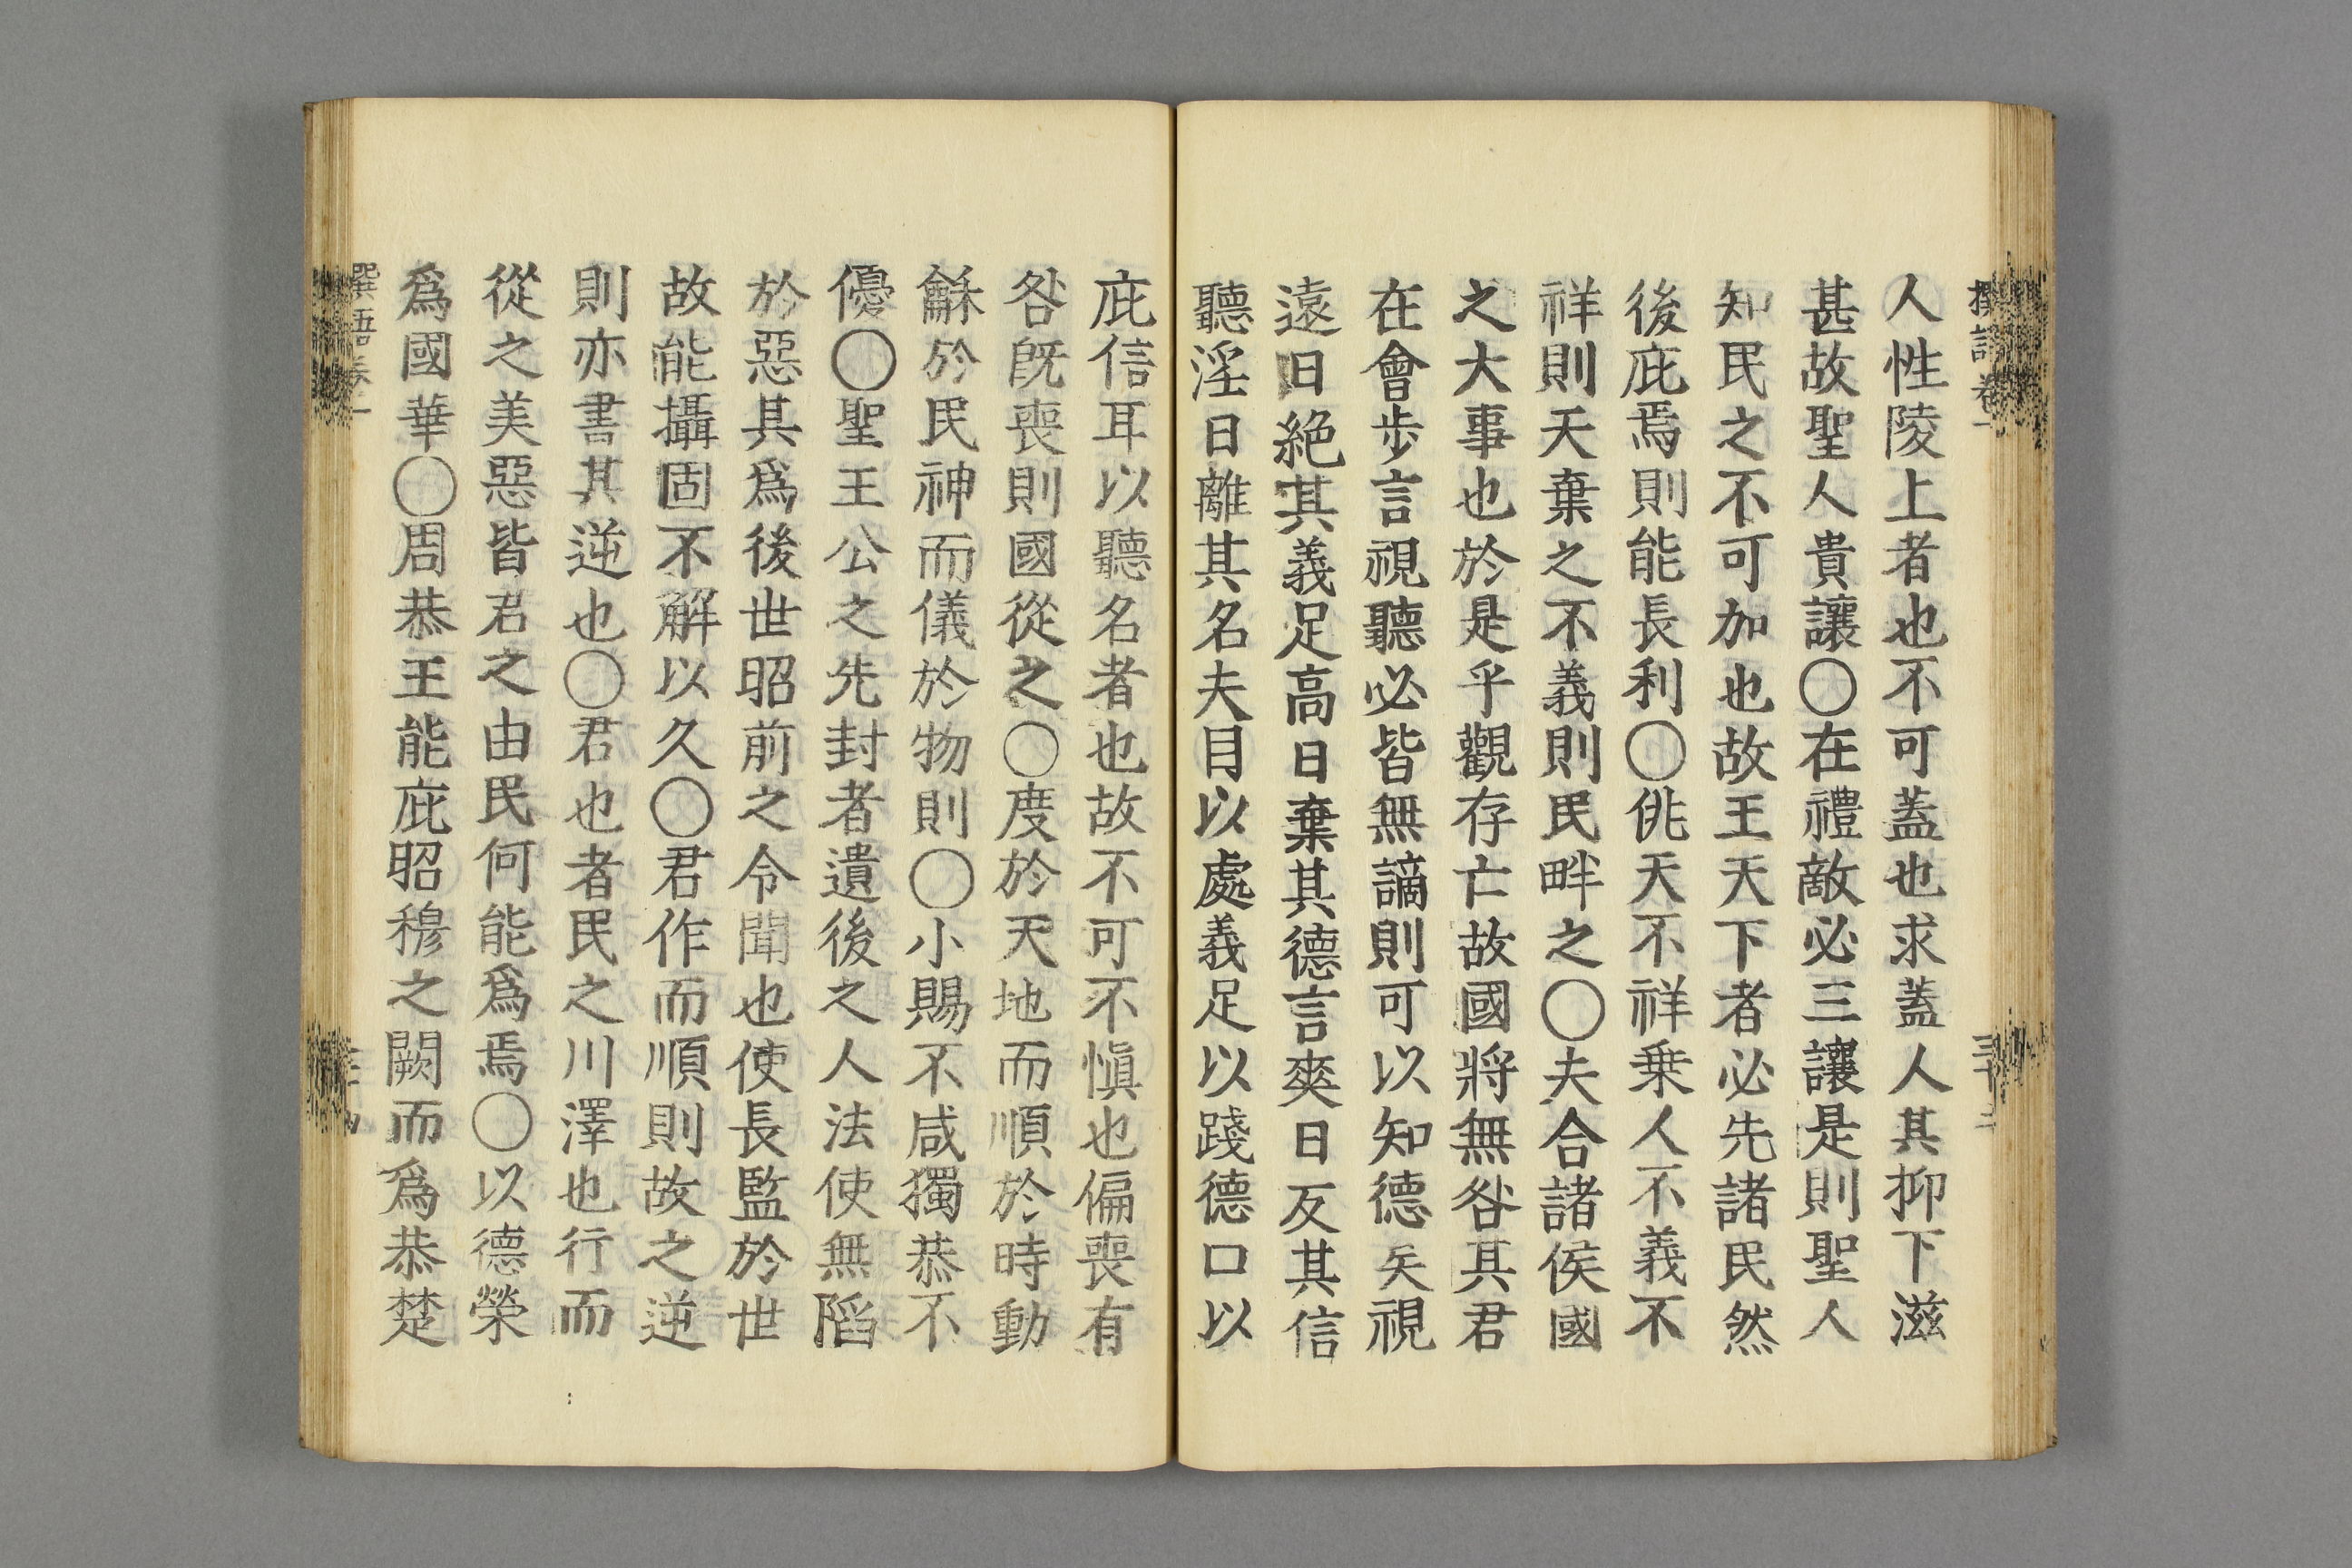 人性陵上者也不可蓋也求蓋人其抑下滋
甚故聖人貴讓〇在禮敵必三讓是則聖人
知民之不可加也故王天下者必先諸民然
後庇焉則能長利〇佻天不祥乗人不義不
祥則天棄之不義則民畔之〇夫合諸侯國
之大事也於是乎觀存亡故國將無咎其君
在會步言視聽必皆無謫則可以知德矣視
遠日絕其義足高日棄其德言爽日反其信
聽淫日離其名夫目以處義足以踐德口以
庇信耳以聽名者也故不可不愼也偏喪有
咎旣喪則國從之〇度於天地而順於時動
龢於民神而儀於物則〇小賜不咸獨恭不
優〇聖王公之先封者遺後之人法使無陷
於惡其爲後世昭前之令聞也使長監於世
故能攝固不解以久〇君作而順則故之逆
則亦書其逆也〇君也者民之川澤也行而
從之美惡皆君之由民何能爲焉〇以德榮
爲國華〇周恭王能庇昭穆之闕而爲恭楚